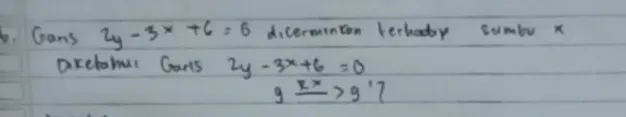 6. Garis 2y - 3x + 6 = 0 dicerminkan terhadap sumbu x
Diketahui Garis 2y - 3x + 6 = 0
g Rx > g'?